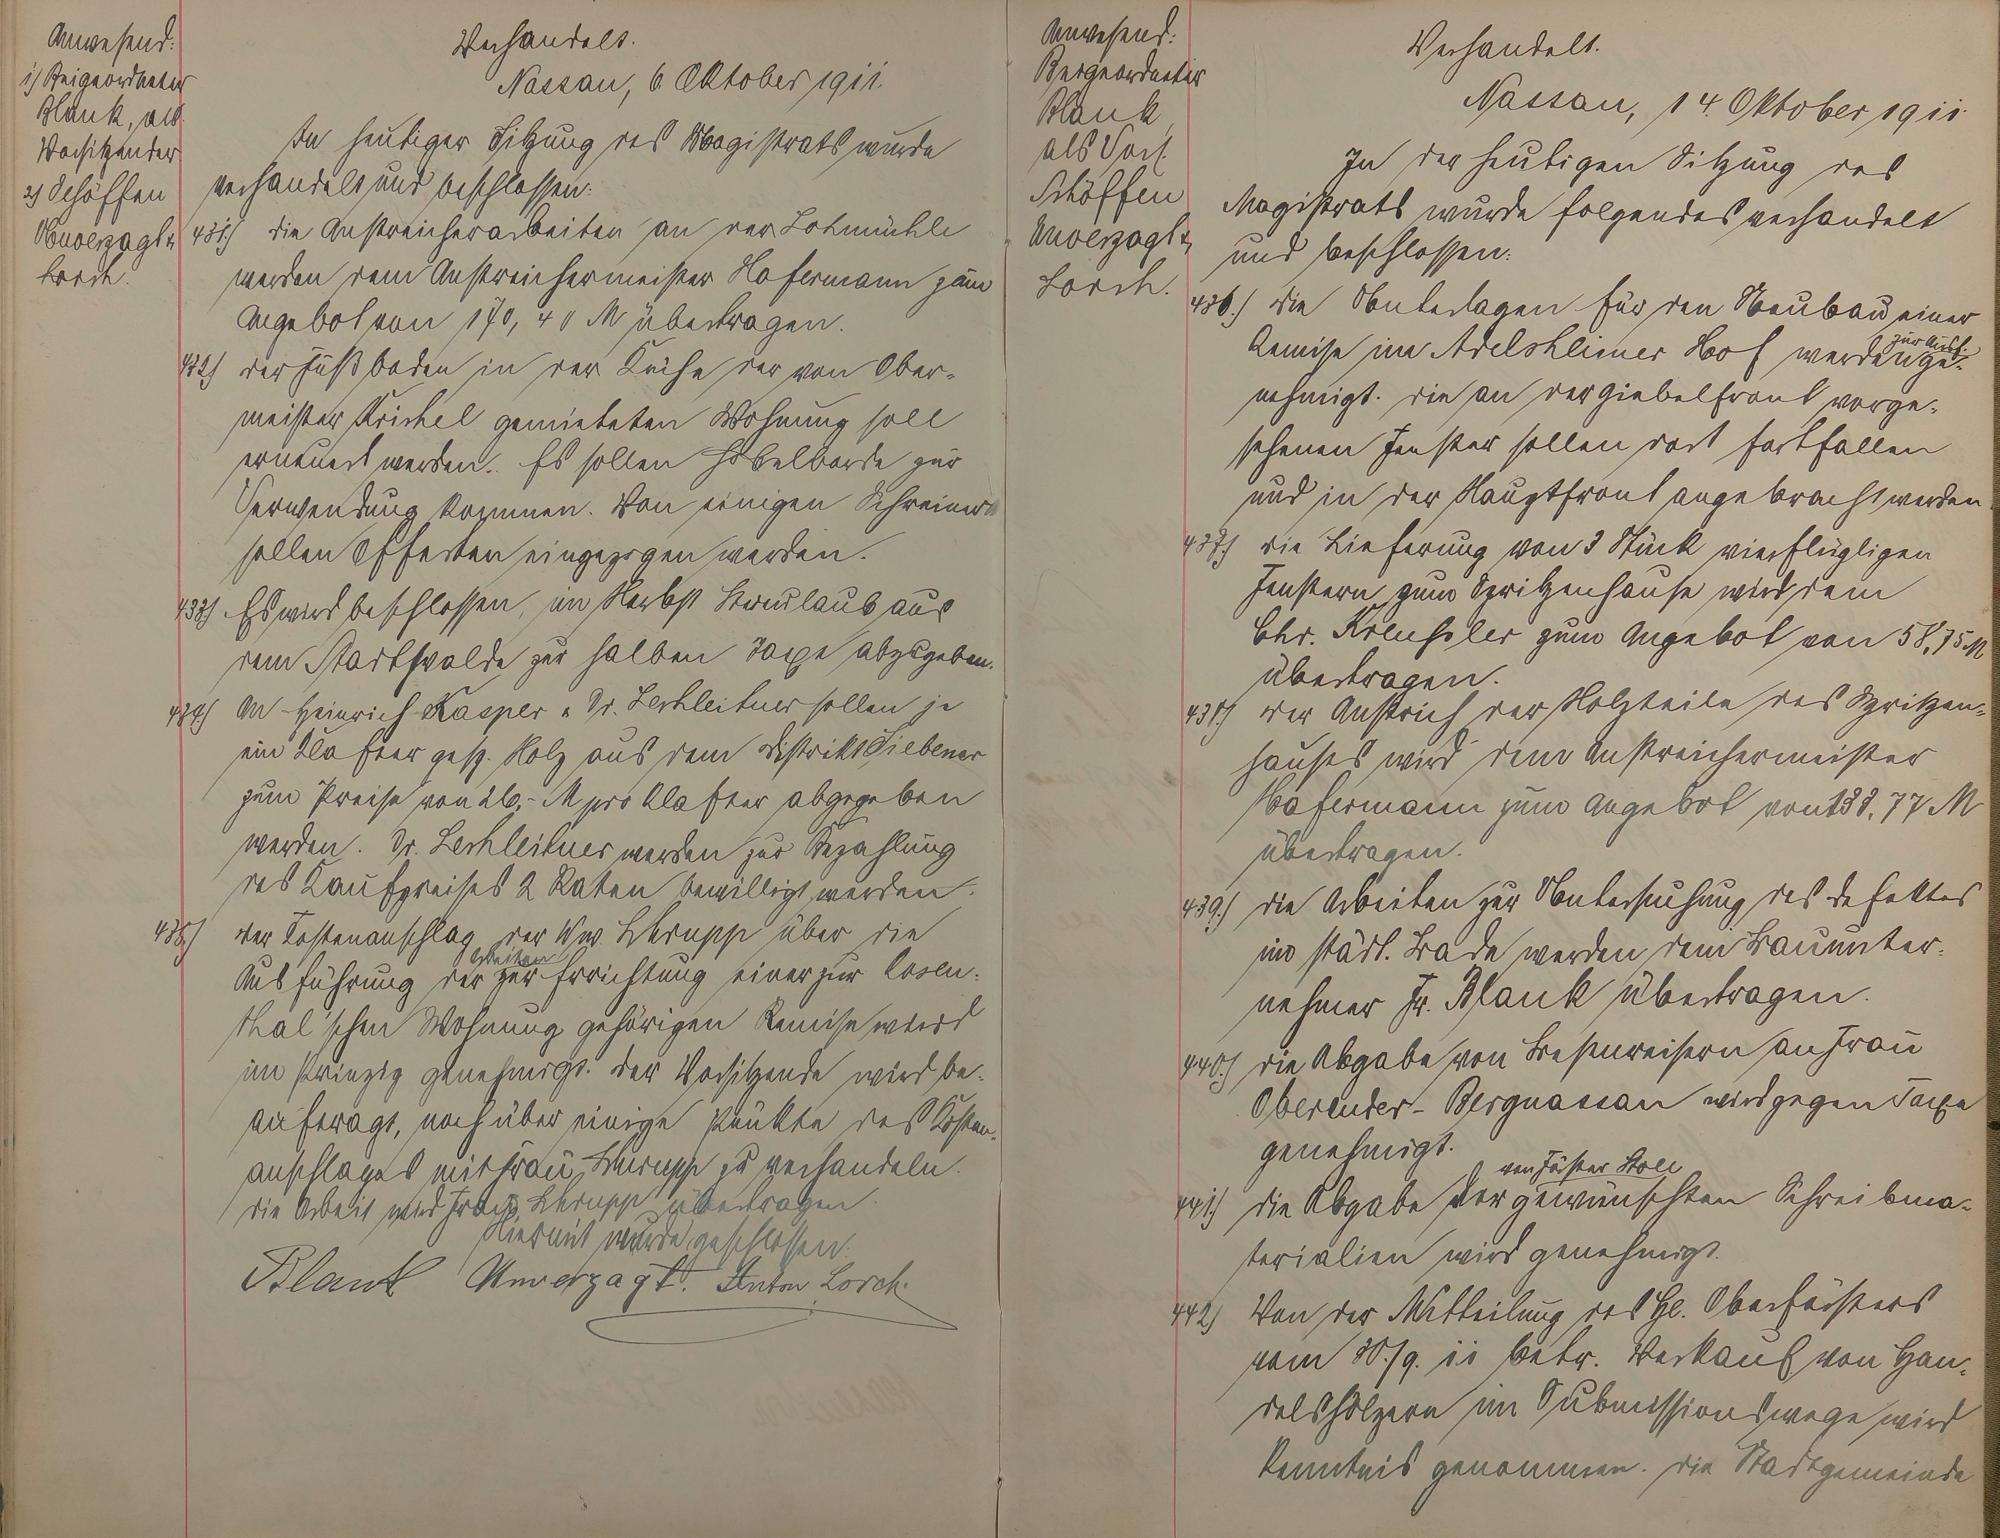 Anwesend:
1) Beigeordneter
Blank, als
Vorsitzender
2) Schöffen
Unverzagt u.
Lorch.
Verhandelt.
Nassau, 6. Oktober 1911.
In heutiger Sitzung des Magistrats wurde
verhandelt und beschlossen:
431.) die Anstreicherarbeiten an der Lohmühle
werden dem Anstreichermeister Hofermann zum
Angebot von 170,40 M übertragen.
432) der Fußboden in der Küche der von Ober-
meister Krichel gemieteten Wohnung soll
erneuert werden. Es sollen Hobelborde zur
Verwendung kommen. Von einigen Schreinern
sollen Offerten eingezogen werden.
433) Es wird beschlossen, im Herbst Streulaub aus
dem Stadtwalde zur halben Taxe abzugeben.
434) An Heinrich Kasper u. Dr. Lechleitner sollen je
ein Klafter gesp. Holz aus dem Distrikt Siebener
zum Preise von 26,- M pro Klafter abgegeben
werden. Dr. Lechleitner werden zur Bezahlung
des Kaufpreises 2 Raten bewilligt werden.
435) der Kostenanschlag der Ww. Chrupp über die
Ausführung der Arbeiten zur Errichtung einer zur Rosen-
thal'schen Wohnung gehörigen Remise wird
im Prinzip genehmigt. Der Vorsitzende wird be-
auftragt, noch über einige Punkte des Kosten-
anschlages mit Frau Chrupp zu verhandeln.
die Arbeit wird Frau Chrupp übertragen.
Hiermit wurde geschlossen.
Blank Unverzagt. Anton Lorch.
Anwesend:
Beigeordneter
Blank
als Vors.
Schöffen
Unverzagt u.
Lorch.
Verhandelt.
Nassau, 14. Oktober 1911.
In der heutigen Sitzung des
Magistrats wurde folgendes verhandelt
und beschlossen:
436.) die Unterlagen für den Neubau einer
Remise im Adelsheimer Hof werden zur Ausf. ge-
nehmigt. die an der Giebelfront vorge-
sehenen Fenster sollen dort fortfallen
und in der Hauptfront angebracht werden.
437.) die Lieferung von 3 Stück vierflügligen
Fenstern zum Spritzenhause wird dem
Chr. Kreuhsler zum Angebot von 58,75 M
übertragen.
438.) der Anstrich der Holzteile des Spritzen-
hauses wird dem Anstreichermeister
Hofermann zum Angebot von 133,77 M
übertragen.
439.) die Arbeiten zur Untersuchung des Defektes
im städt. Bade werden dem Bauunter-
nehmer Fr. Blank übertragen.
440.) die Abgabe von Besenreisern an Frau
Oberender-Bergnassau wird gegen Taxe
genehmigt.
441.) die Abgabe der von Förster Stoll gewünschten Schreibma-
terialien wird genehmigt.
442) Von der Mitteilung des Hl. Oberförsters
vom 30./9. 11 betr. Verkauf von Han-
delshölzern im Submissionswege wird
Kenntnis genommen. die Stadtgemeinde